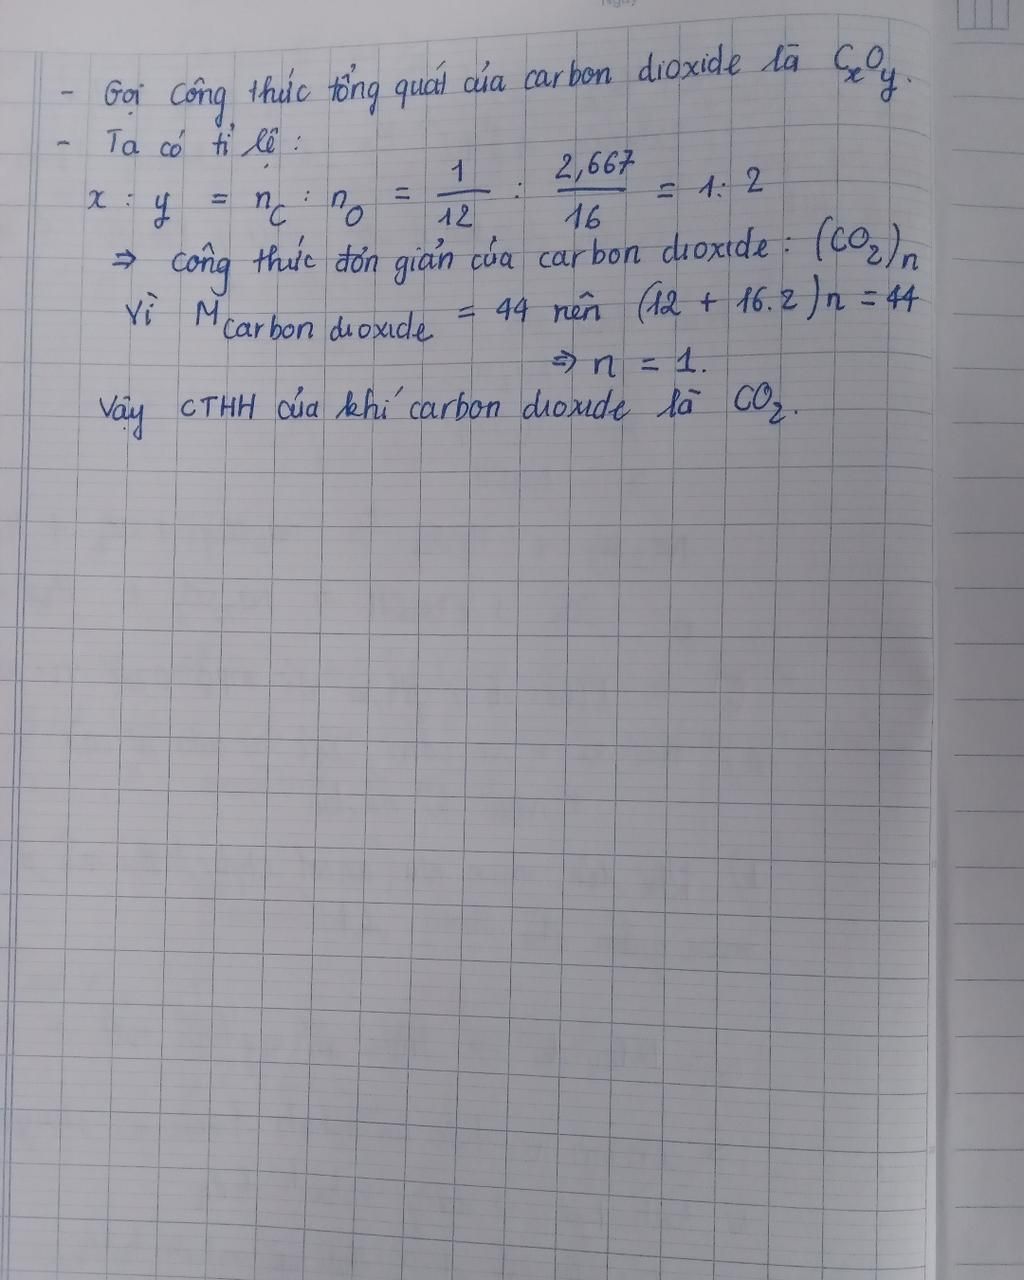 - Gọi công thức tổng quát của carbon dioxide là CₓOy.
- Ta có tỉ lệ :
x : y = nC : nO = 1/12 : 2,667/16 = 1 : 2
⇒ công thức đơn giản của carbon dioxide : (CO₂)n
Vì Mcarbon dioxide = 44 nên (12 + 16.2)n = 44
⇒ n = 1.
Vậy CTHH của khí carbon dioxide là CO₂.